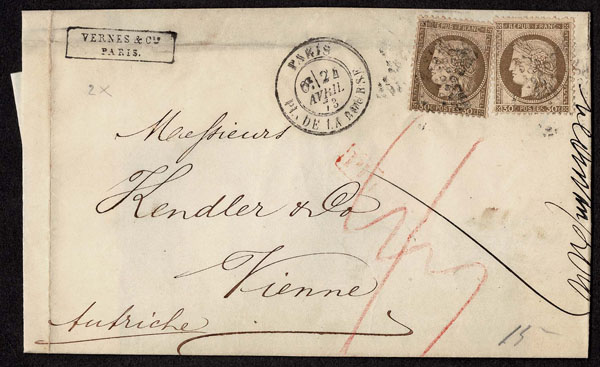 VERNES & Cie
PARIS.
PARIS
24
AVRIL
73
PL. DE LA BOURSE
REPUB. FRANC.
30 POSTES 30
REPUB. FRANC.
30 POSTES 30
2x
Messieurs
Kendler & Co
Vienne
Autriche
15-